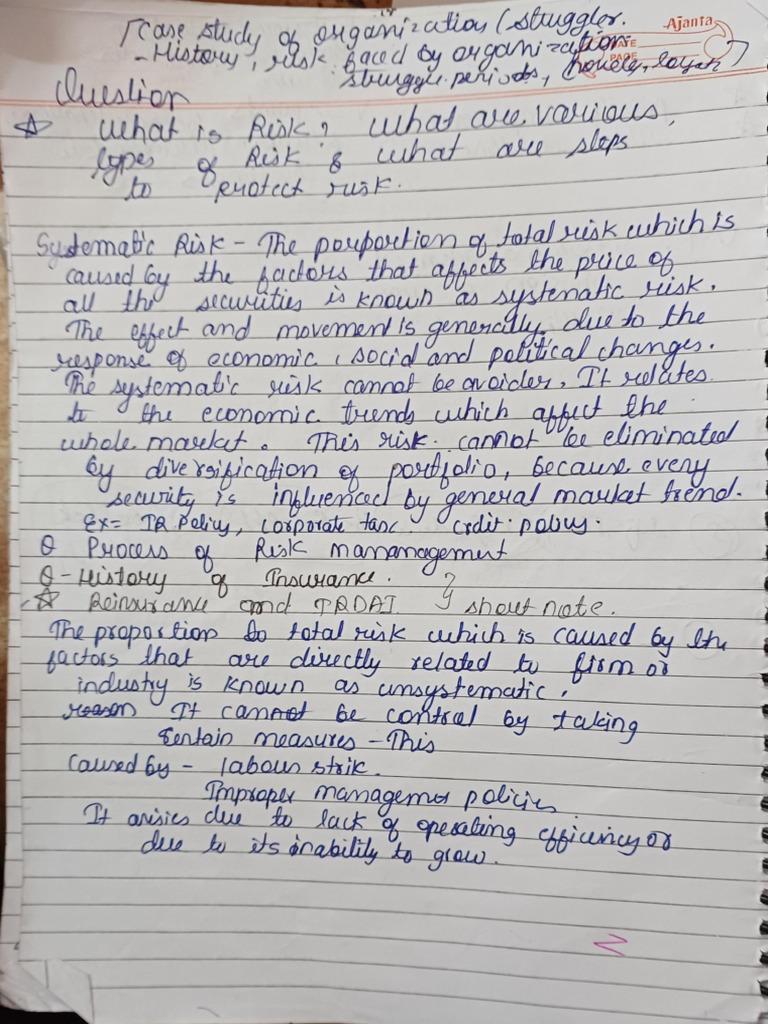 Case study of organization (struggler.
- History, risk faced by organization
struggle periods,
Ajanta
DATE
PAGE
Question
☆ What is Risk, What are various,
types of Risk & what are steps
to protect risk.
Systematic Risk - The porportion of total risk which is
caused by the factors that affects the price of
all the securities is known as systematic risk.
The effect and movement is generally, due to the
response of economic, social and political changes.
The systematic risk cannot be avoider. It relates
to the economic trends which affect the
whole market. This risk. cannot be eliminated
by diversification of portfolio, because every
security is influenced by general market trend.
Ex = IR Policy, corporate tax. Credit policy.
Q Process of Risk manamagement
Q - History of Insurance.
☆ Reinsurance and IRDAI } short note.
The proportion to total risk which is caused by the
factors that are directly related to firm or
industry is known as unsystematic.
reason It cannot be control by taking
Sertain measures - This
Caused by - labour strik.
Improper management policies
It arisies due to lack of operating efficiency or
due to its inability to grow.